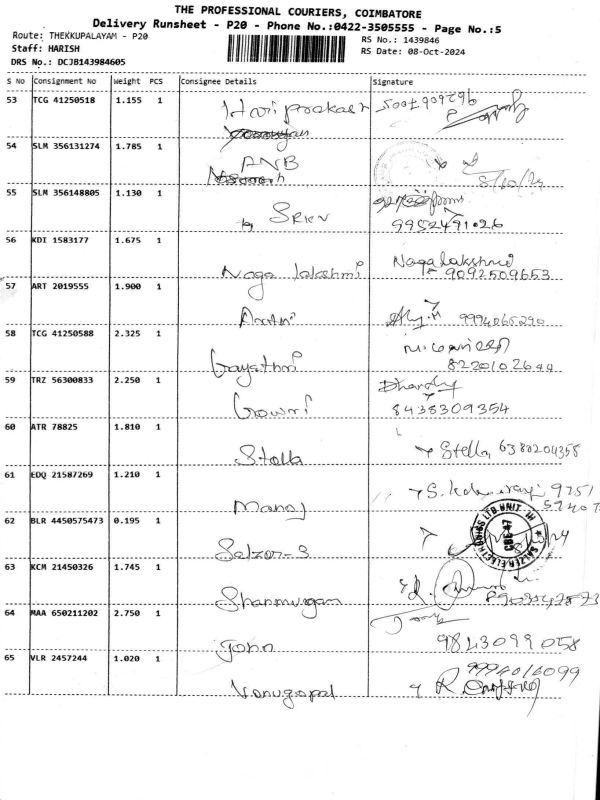 THE PROFESSIONAL COURIERS, COIMBATORE
Delivery Runsheet - P20 - Phone No.:0422-3505555 - Page No.:5
Route: THEKKUPALAYAM - P20
RS No.: 1439846
Staff: HARISH
RS Date: 08-Oct-2024
DRS No.: DCJB143984605
S No Consignment No Weight PCS Consignee Details Signature
53 TCG 41250518 1.155 1
Hariprakash
54 SLM 356131274 1.785 1
ANB
8/10/24
55 SLM 356148805 1.130 1
SRKV 9952491026
56 KDI 1583177 1.675 1
Naga lakshmi Nagalakshmi 9092509653
57 ART 2019555 1.900 1
Arathi 9994065290
58 TCG 41250588 2.325 1
Gayathri 8220102644
59 TRZ 56300833 2.250 1
Gowri 8438309354
60 ATR 78825 1.810 1
Stella Stella 6380204358
61 EDQ 21587269 1.210 1
Manoj S.
62 BLR 4450575473 0.195 1
Salzer-3
SALZER ELECTRONICS LTD. UNIT-III
CBE-47
63 KCM 21450326 1.745 1
Shanmugam
64 MAA 650211202 2.750 1
John 9843099058
65 VLR 2457244 1.020 1
9994016099
Venugopal R.